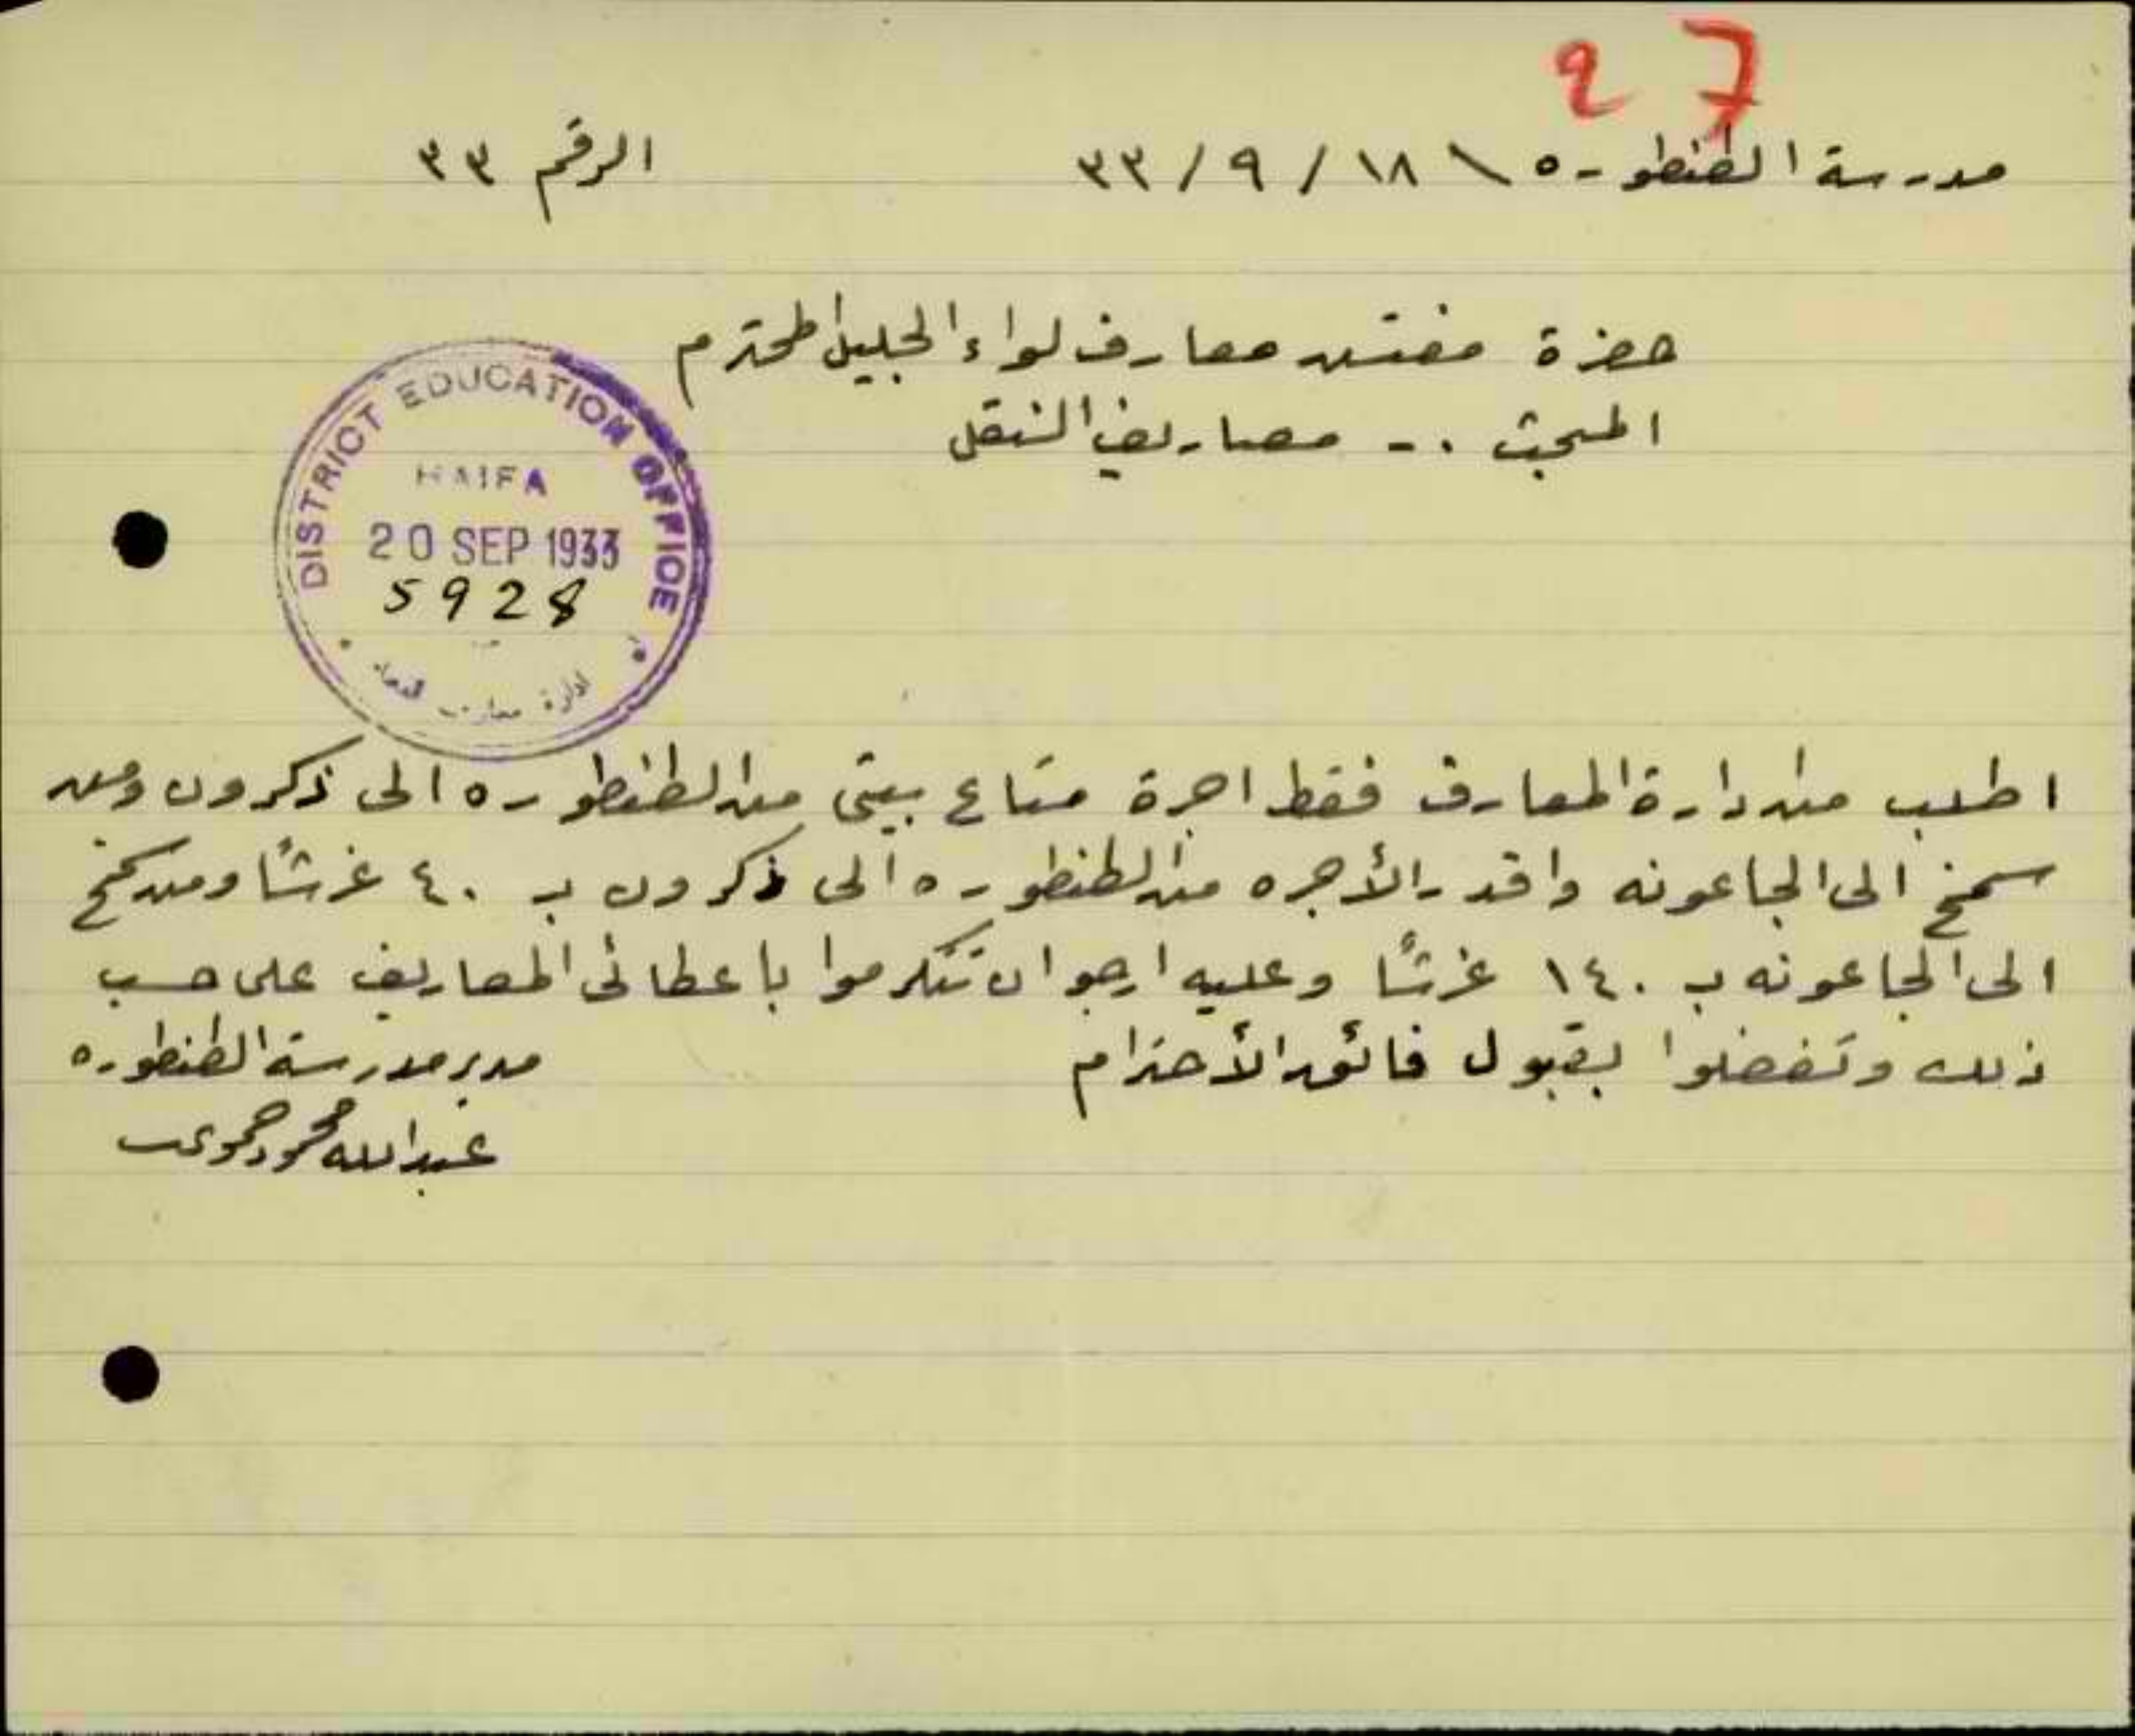 27
مدرسة الطنطوره \ ١٨ / ٩ / ٣٣ الرقم ٣٣
حضرة مفتش معارف لواء الجليل المحترم
المبحث :- مصاريف النقل
DISTRICT EDUCATION OFFICE
HAIFA
20 SEP 1933
5928
ادارة معارف
اطلب من ادارة المعارف فقط اجرة متاع بيتي من الطنطوره الى زكرون ومن
سمخ الى الجاعونه واقدر الأجره من الطنطوره الى زكرون ب ٤٠ غرشًا ومن سمخ
الى الجاعونه ب ١٤٠ غرشًا وعليه ارجو ان تتكرموا باعطائى المصاريف على حسب
ذلك وتفضلوا بقبول فائق الأحترام
مدير مدرسة الطنطوره
عبدالله محمود